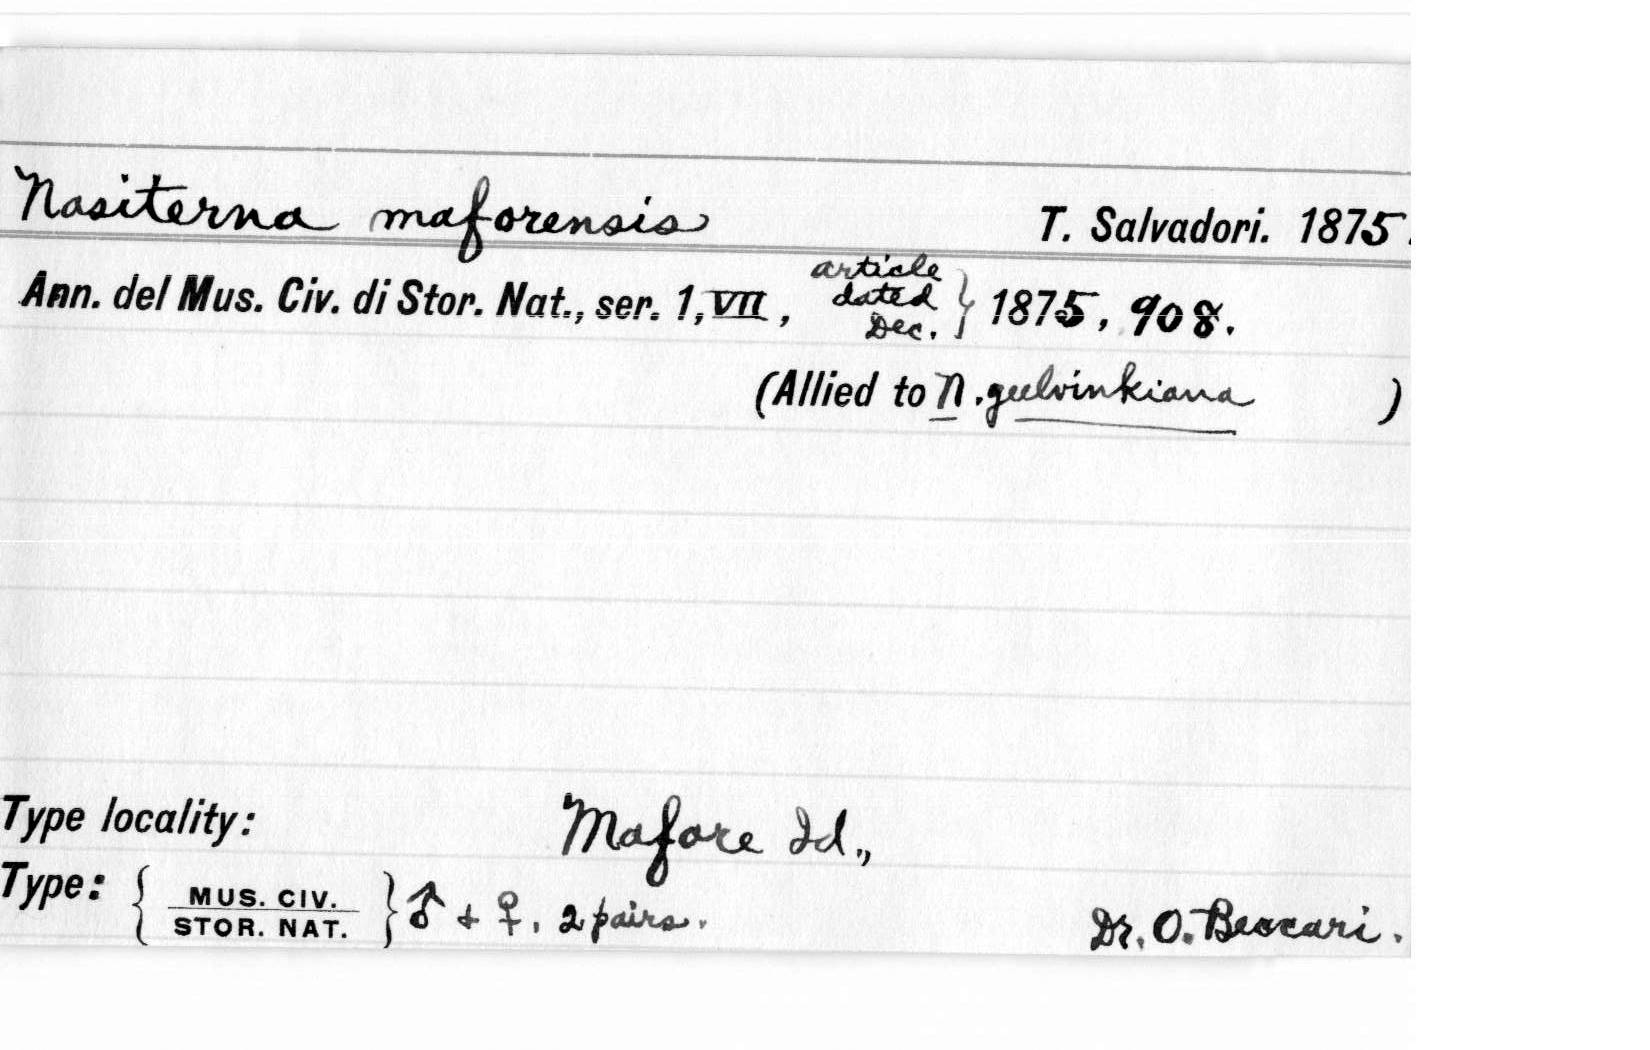 Nasiterna maforensis T. Salvadori. 1875.
Ann. del Mus. Civ. di Stor. Nat., ser. 1, VII, article dated Dec. } 1875, 908.
(Allied to N. geelvinkiana )
Type locality: Mafore Id.,
Type: { MUS. CIV. STOR. NAT. } ♂ + ♀, 2 pairs. Dr. O. Beccari.